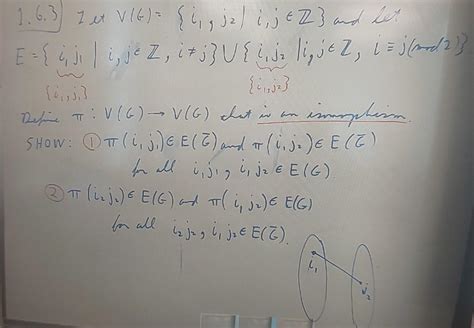 1.6.3) Let V(G) = {i₁, j₂ | i, j ∈ ℤ} and let
E = {i₁j₁ | i, j ∈ ℤ, i ≠ j} ∪ {i₁j₂ | i, j ∈ ℤ, i ≡ j (mod 2)}
{i₁, j₁} {i₁, j₂}
Define π: V(G) → V(G) that is an isomorphism.
SHOW: ① π(i₁j₁) ∈ E(G̅) and π(i₁j₂) ∈ E(G̅)
for all i₁j₁, i₁j₂ ∈ E(G)
② π(i₂j₂) ∈ E(G) and π(i₁j₂) ∈ E(G)
for all i₂j₂, i₁j₂ ∈ E(G̅).
i₁
j₂